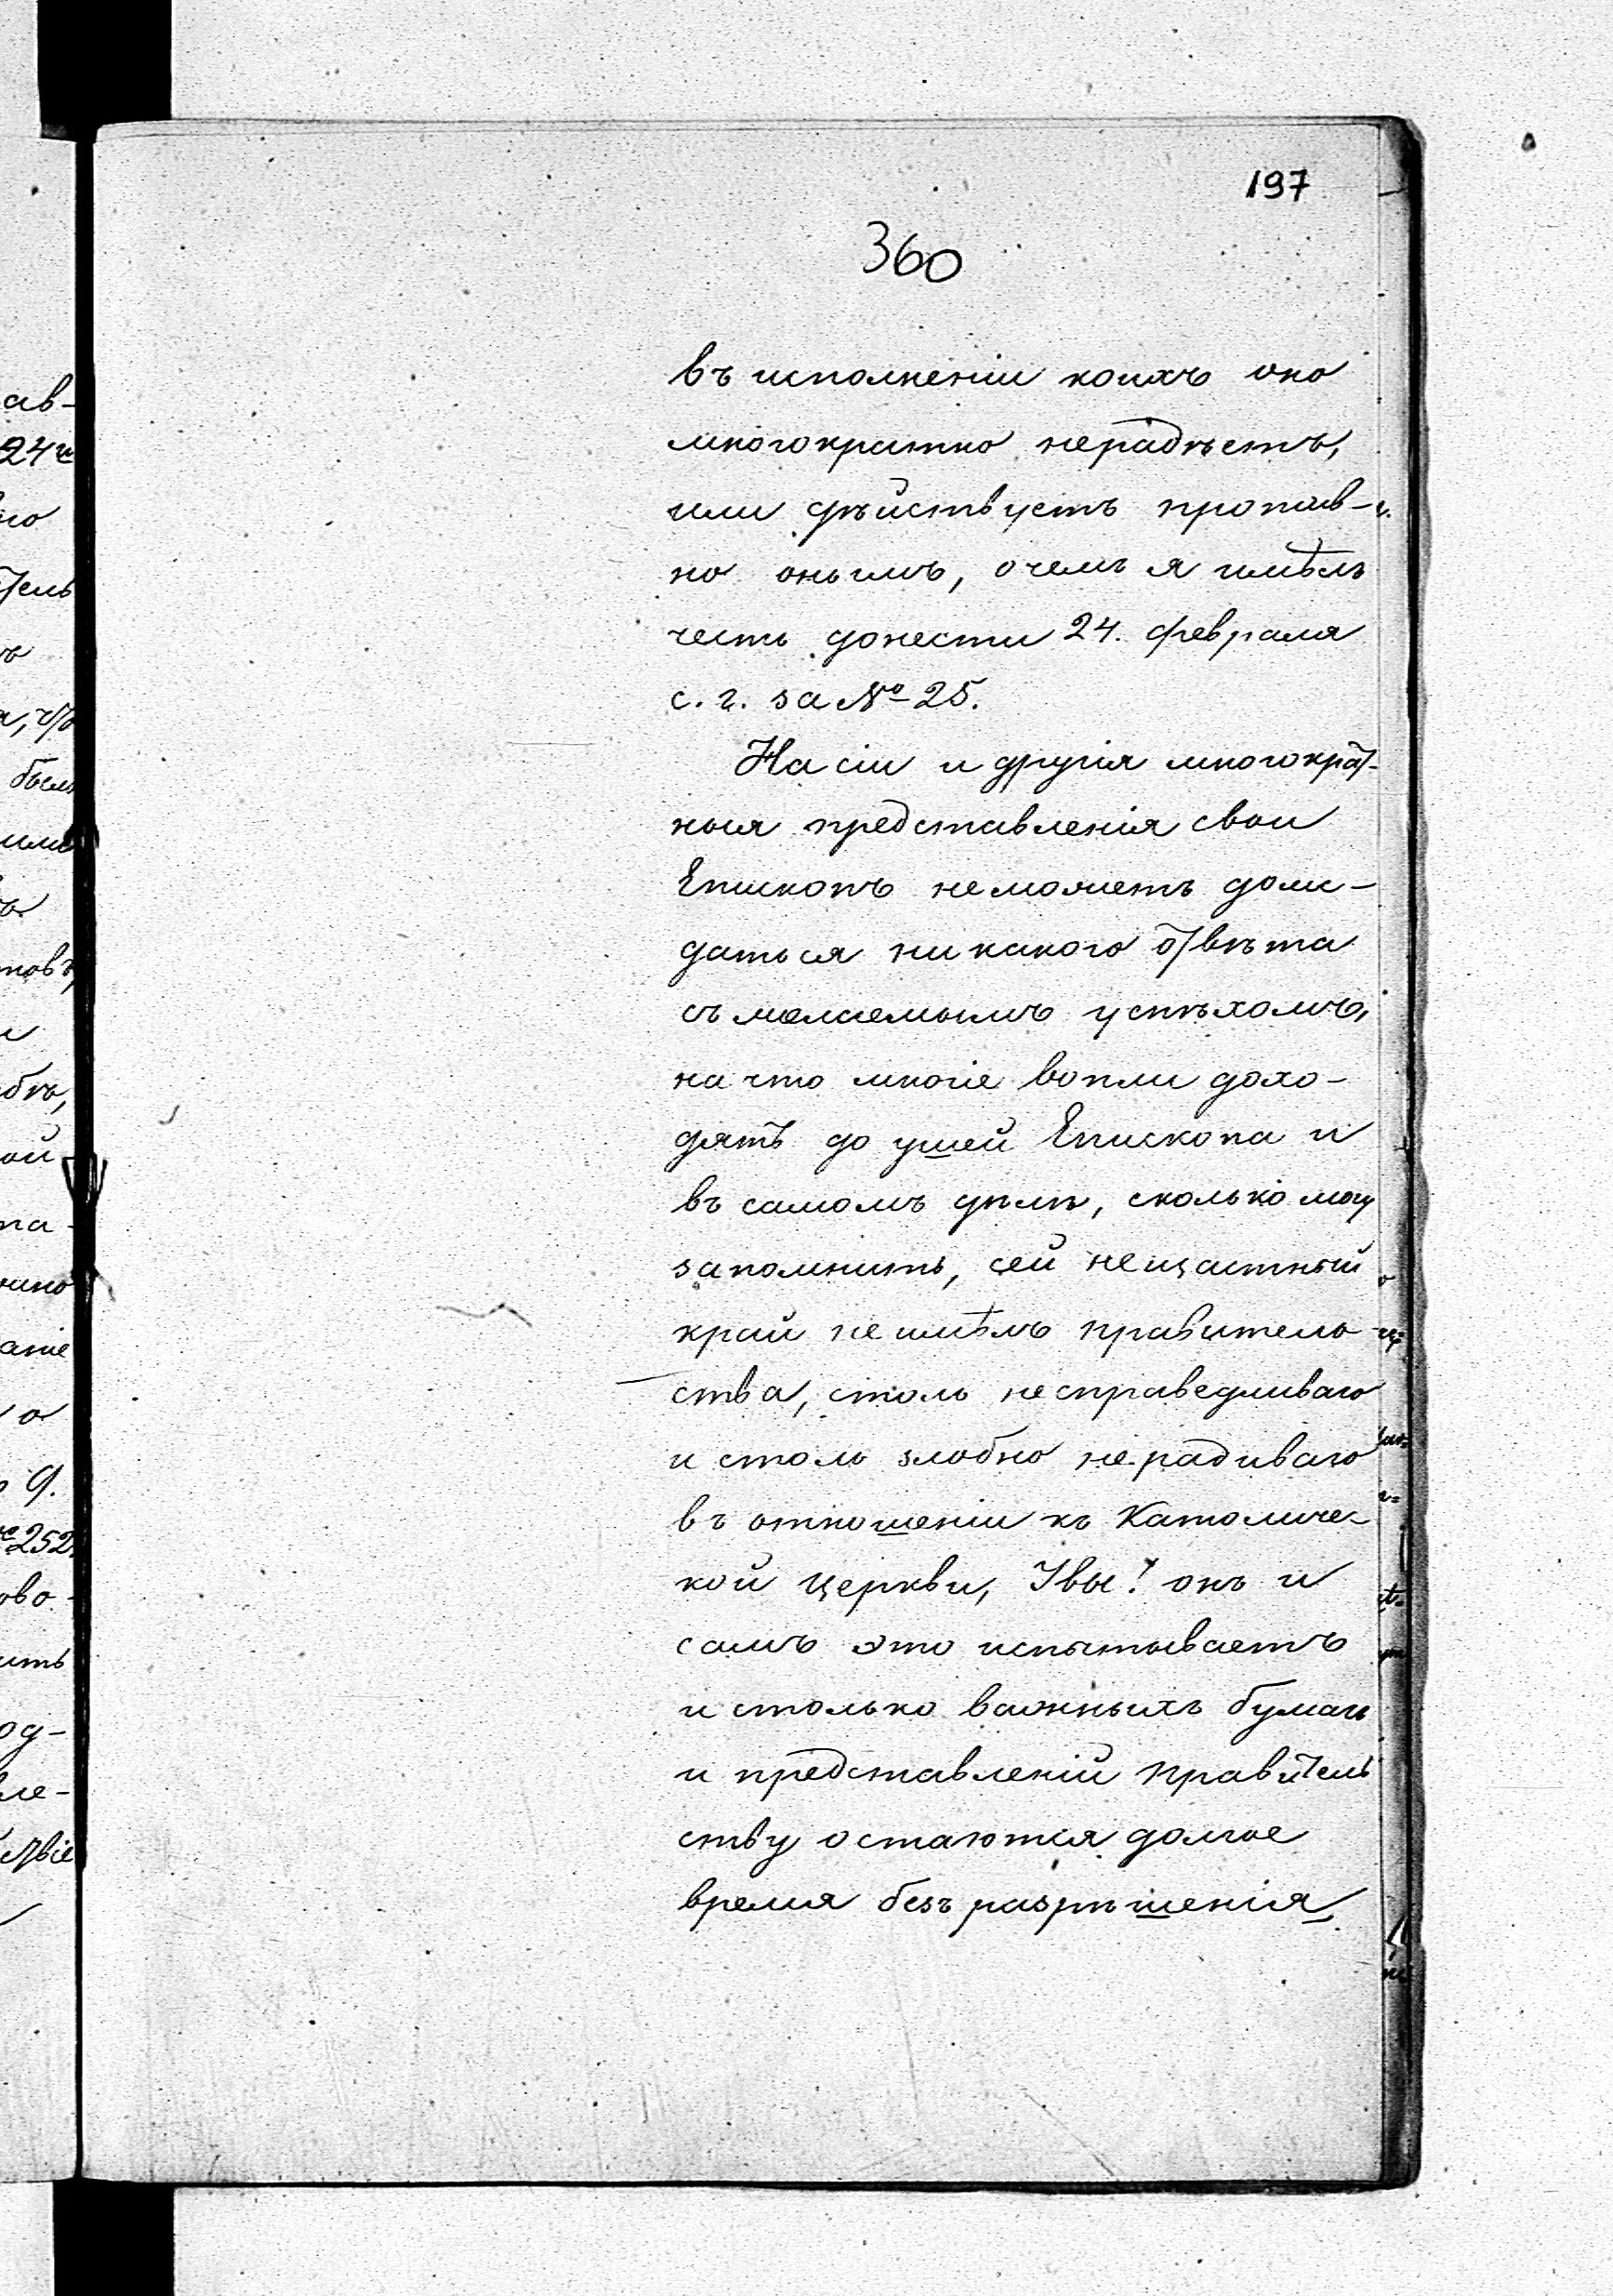 197
360
въ исполненіи коихъ оно
многократно нерадѣетъ,
или дѣйствуетъ против-
но онымъ, о чемъ я имѣлъ
честь донести 24. февраля
с. г. за № 25.
На сіи и другія многократ-
ныя представленія свои
Епископъ неможетъ дожи-
даться никакого отвѣта
съ желаемымъ успѣхомъ,
на что многіе вопли дохо-
дятъ до ушей Епископа и
въ самомъ дѣлѣ, сколько могу
запомнить, сей нещастный
край неимѣлъ правитель-
ства, столь несправедливаго
и столь злобно нерадиваго
въ отношеніи къ Католичес-
кой Церкви, Увы! онъ и
самъ это испытываетъ
и столько важныхъ бумагъ
и представленій правитель
ству остаются долгое
время безъ разрѣшенія,